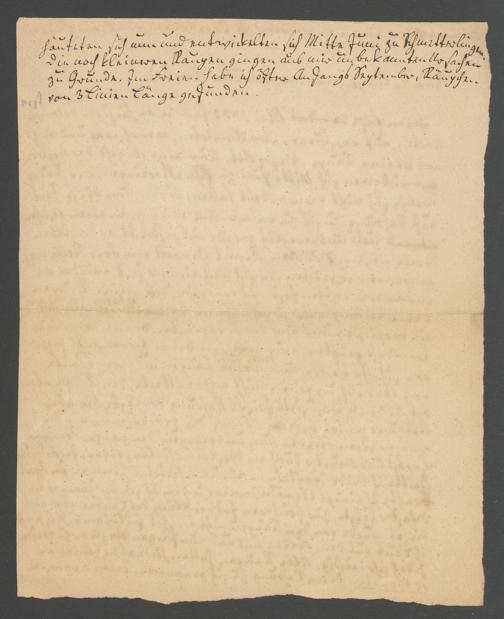 häuteten sich nun und entwickelten sich Mitte Juni zu Schmetterlingen.
Die noch kleineren Raupen gingen aus mir unbekannten Ursachen
zu Grunde. Im Freien habe ich öfters Anfangs September, Räupchen
von 3 Linien Länge gefunden.